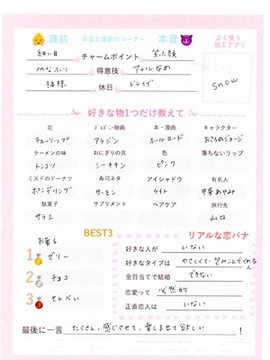 建前
本音と建前のコーナー
本音
よく使う加工アプリ
チャームポイント
笑った顔
得意技
休日
ドライブ
snow
好きな物1つだけ教えて
花
ドラマ・映画
本・漫画
キャラクター
チューリップ
アラジン
ホットロード
おさるのジョージ
ラーメンの味
おにぎりの具
色
落ちないリップ
トンコツ
シーチキン
ピンク
ミスドのドーナツ
寿司ネタ
アイシャドウ
有名人
ポンデリング
サーモン
ケイト
中条あやみ
駄菓子
サプリメント
ヘアケア
旅行先
BEST3
リアルな恋バナ
お菓子
好きな人が
いない
1
ゼリー
好きなタイプは
2
チョコ
念日当てで結婚
できない
恋愛って
必然的
3
せんべい
正直恋人は
いない
最後に一言
たくさん、感じさせて、愛しませて欲しい!